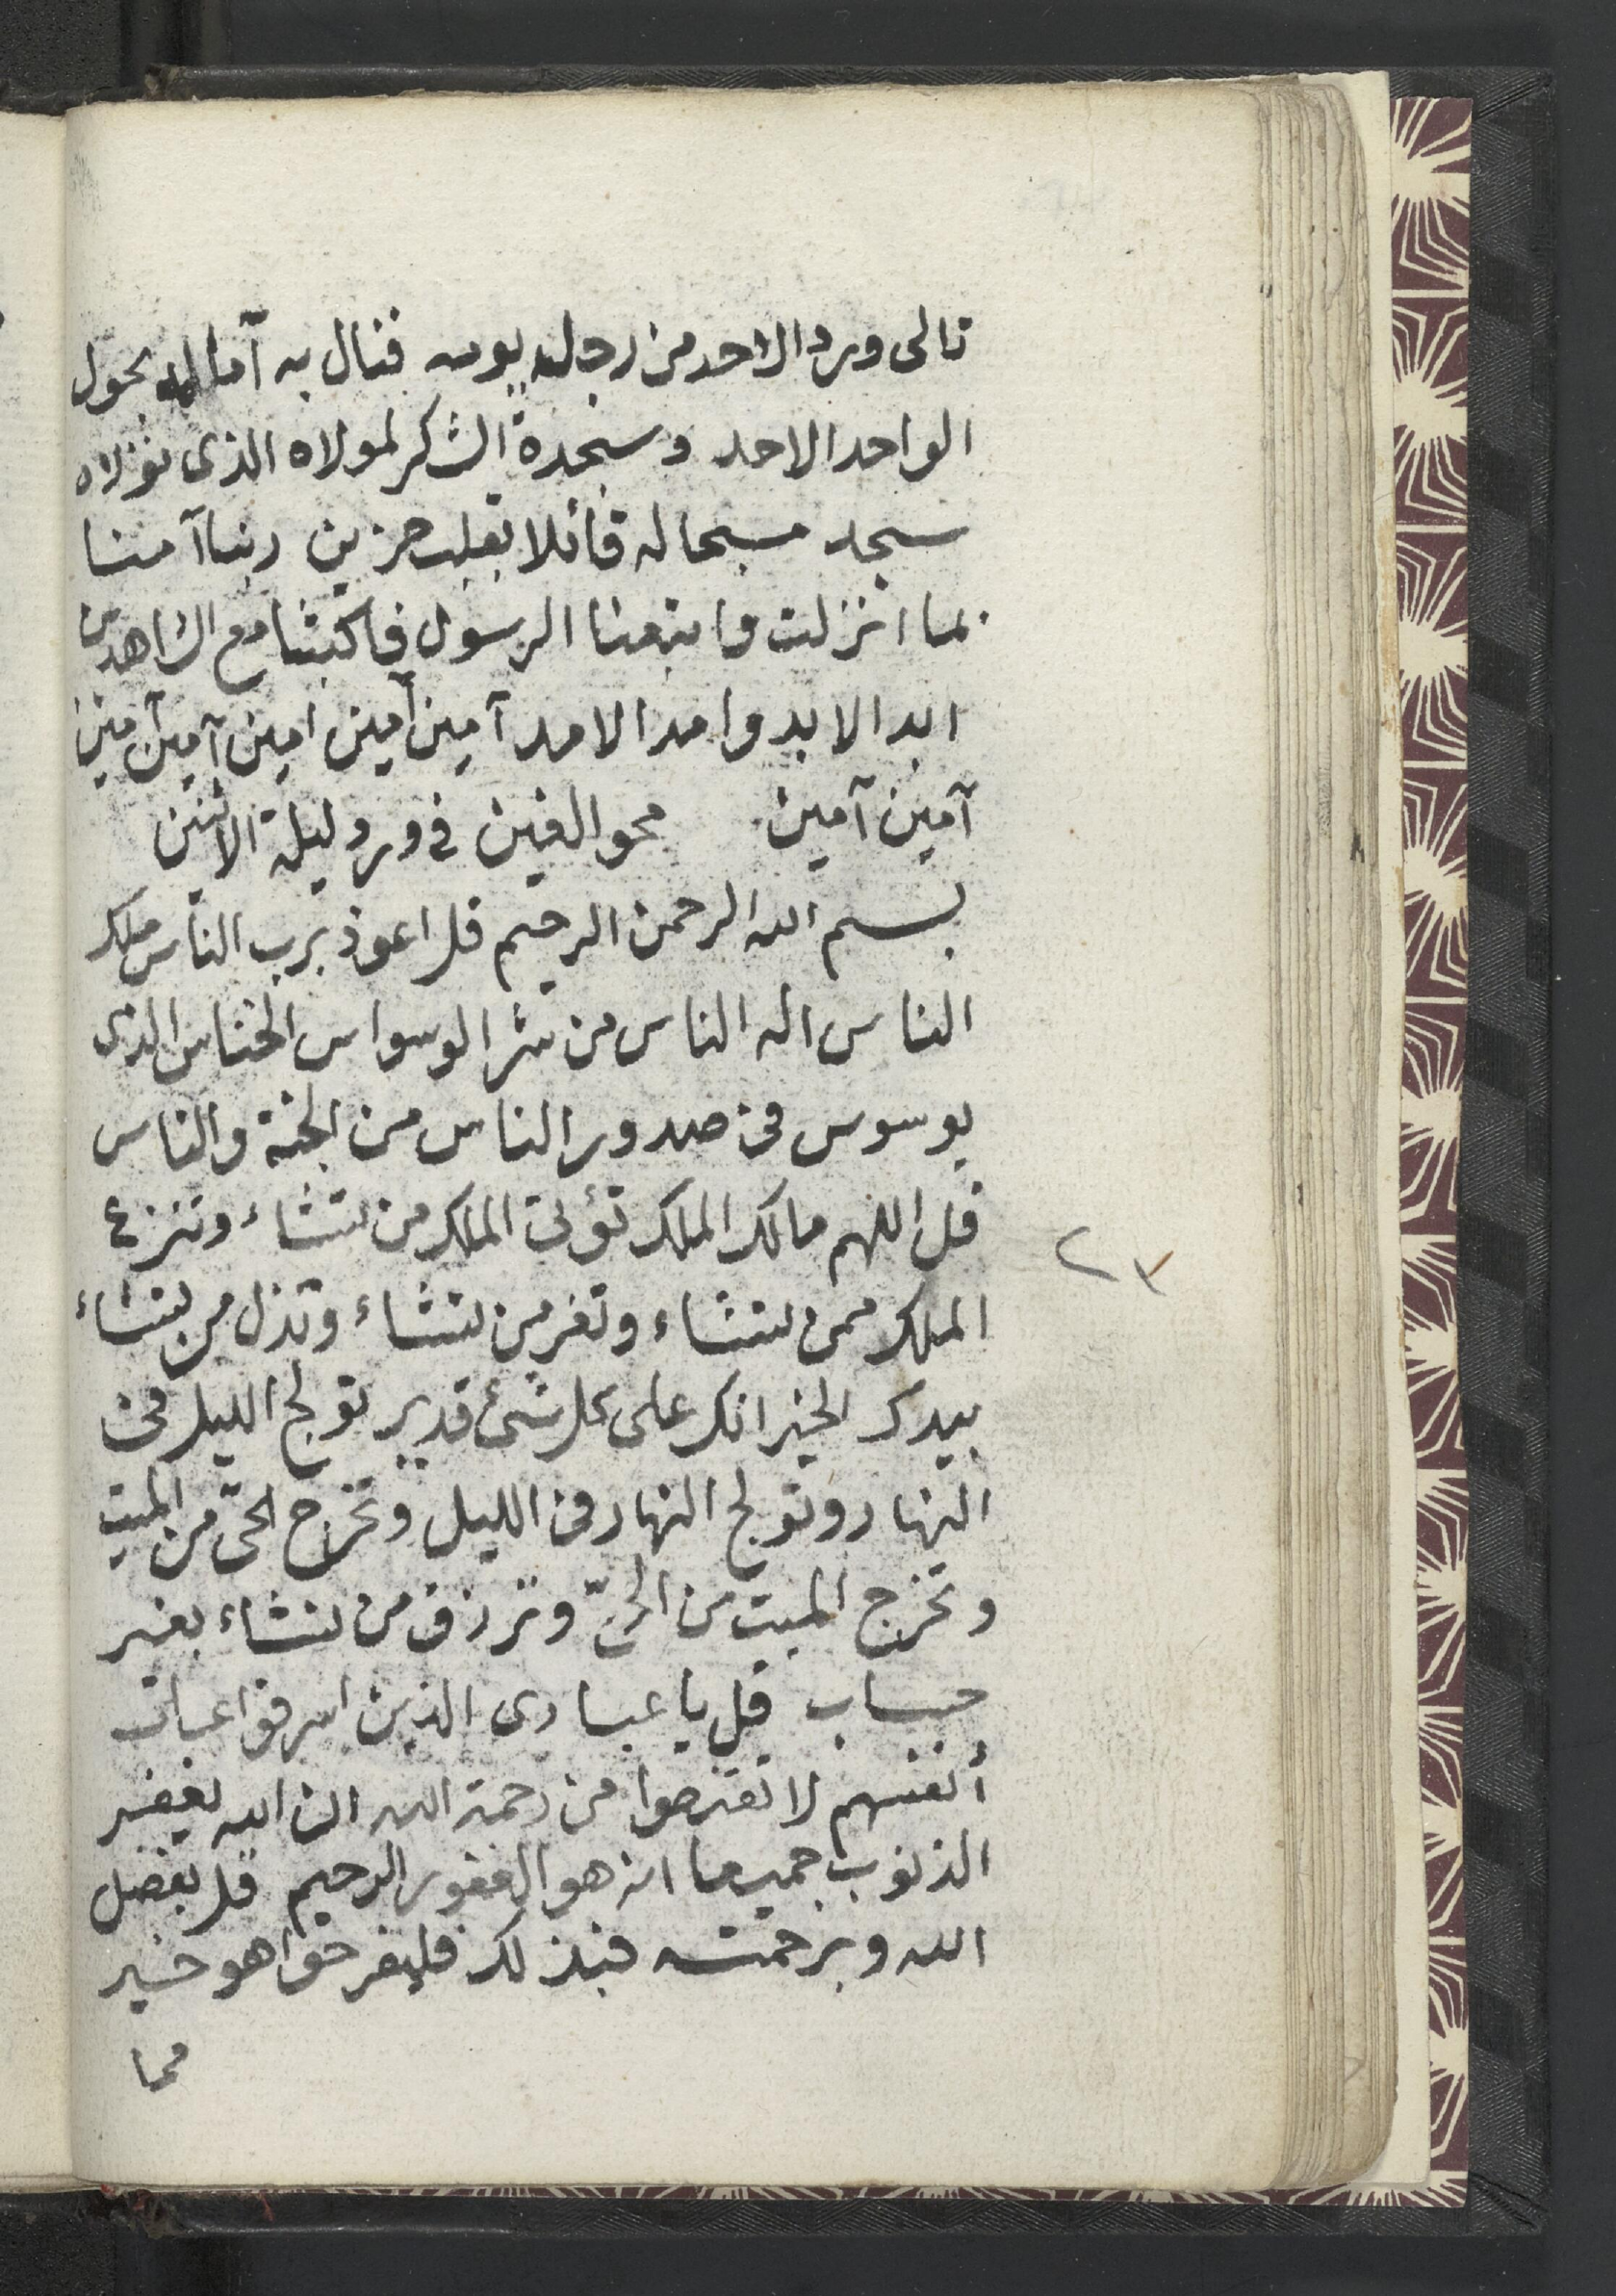 تالى ورد الاحد من رجله يومه فنال به آماله بحول
الواحد الاحد وسجدة الشكر لمولاه الذى
سجد مسبحا له قائلا بقلب حزين ربنا آمنا
بما انزلت واتبعنا الرسول فاكتبنا مع الشاهدين
ابد الابد وامد الامد آمين آمين امين آمين آمين
آمين آمين محو الغين فى ورد ليلة الاثنين
بسم الله الرحمن الرحيم قل اعوذ برب الناس ملك
الناس اله الناس من شر الوسواس الخناس الذى
يوسوس فى صدور الناس من الجنة والناس
قل اللهم مالك الملك تؤتى الملك من تشاء وتنزع
الملك ممن تشاء وتعز من تشاء وتذل من تشاء
بيدك الخير انك على كل شئ قدير تولج الليل فى
النهار وتولج النهار فى الليل وتخرج الحى من الميت
وتخرج الميت من الحىّ وترزق من تشاء بغير
حساب قل يا عبادى الذين اسرفوا على
أنفسهم لا تقنطوا من رحمة الله ان الله يغفر
الذنوب جميعا انه هو الغفور الرحيم قل بفضل
الله وبرحمته فبذلك فليفرحوا هو خير
مما